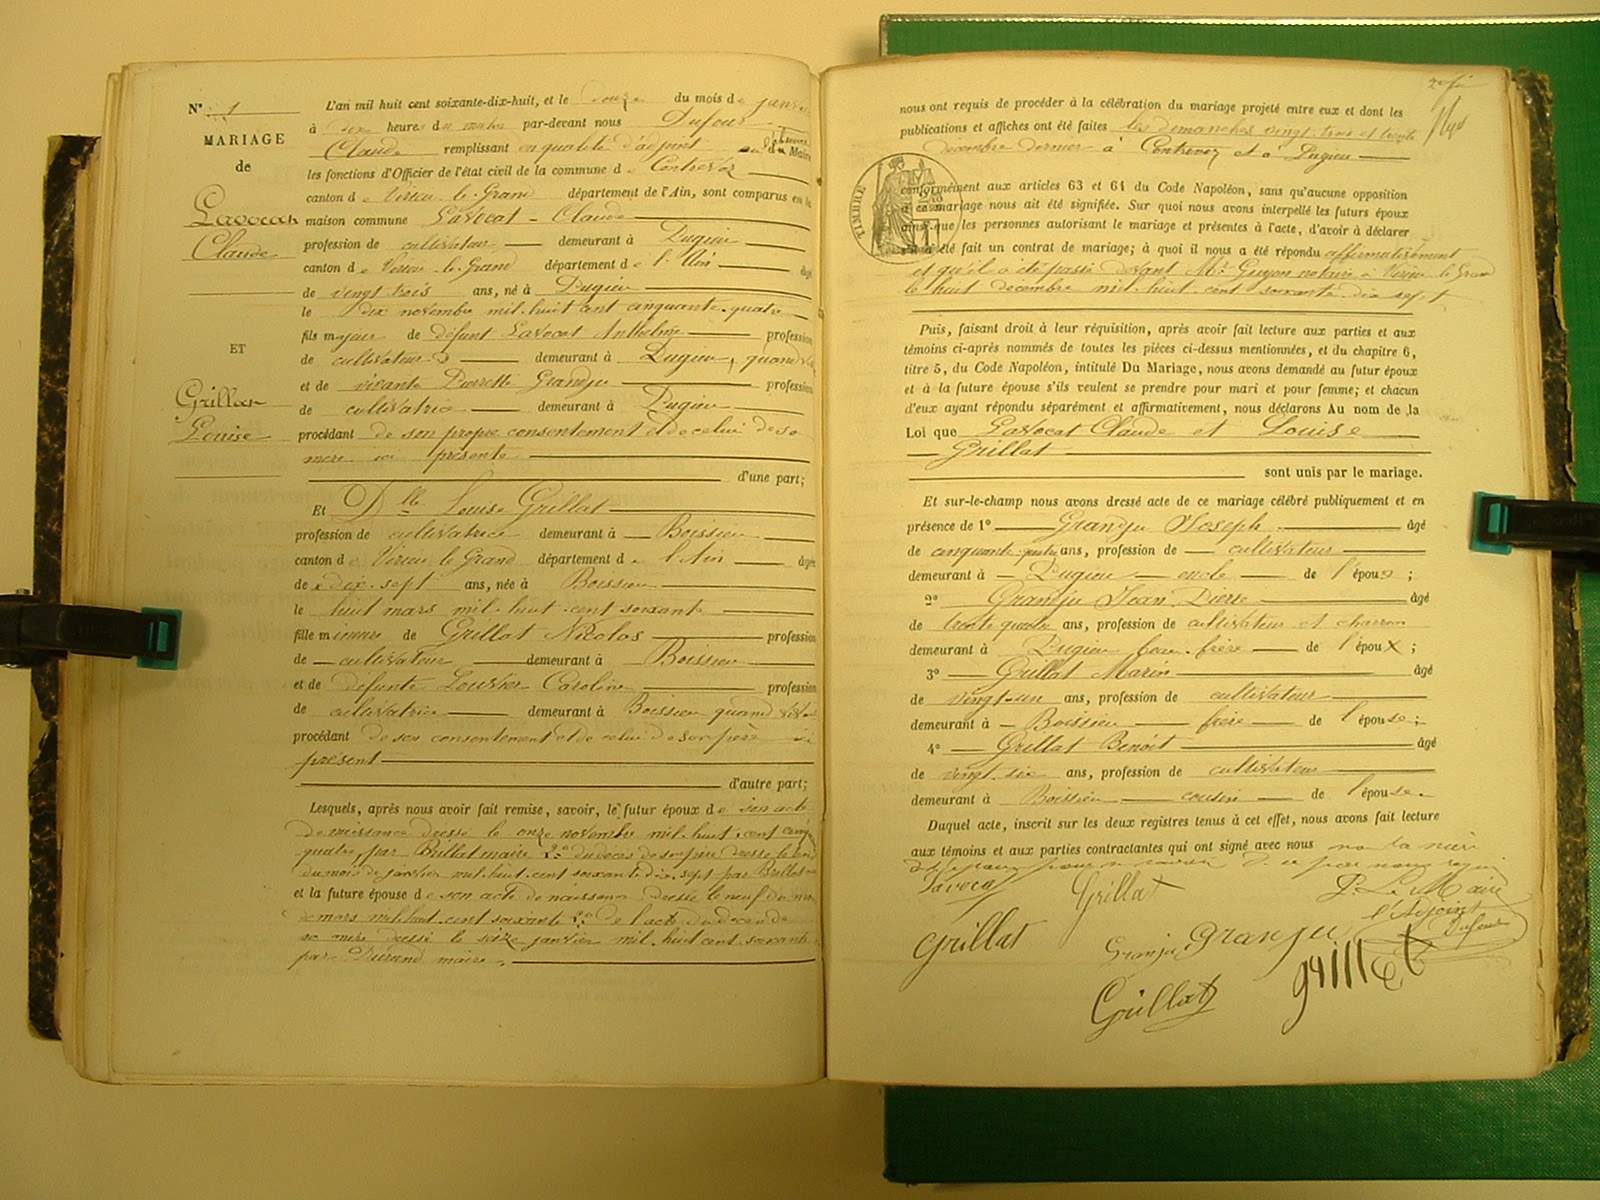 N° 1
MARIAGE
de
Lavocat
Claude
ET
Grillat
Louise
L'an mil huit cent soixante-dix-huit, et le douze du mois de janvier
à dix heures du matin par-devant nous Dufour
Claude remplissant en qualité d'adjoint du Maire
les fonctions d'Officier de l'état civil de la commune de Contrevoz
canton de Virieu-le-Grand département de l'Ain, sont comparus en la
maison commune Lavocat Claude
profession de cultivateur demeurant à Pugieu
canton de Virieu-le-Grand département de l'Ain âgé
de vingt trois ans, né à Pugieu
le dix novembre mil huit cent cinquante-quatre
fils majeur de défunt Lavocat Anthelme profession
de cultivateur demeurant à Pugieu, quand vivait
et de vivante Pierrette Grandju profession
de cultivatrice demeurant à Pugieu
procédant de son propre consentement et de celui de sa
mère ici présente
d'une part;
Et Dlle Louise Grillat
profession de cultivatrice demeurant à Boissieu
canton de Virieu le Grand département de l'Ain âgée
de dix-sept ans, née à Boissieu
le huit mars mil-huit-cent soixante
fille mineure de Grillat Nicolas profession
de cultivateur demeurant à Boissieu
et de défunte Louvier Caroline profession
de cultivatrice demeurant à Boissieu quand vivait
procédant de son consentement et de celui de son père ici
présent
d'autre part;
Lesquels, après nous avoir fait remise, savoir, le futur époux de son acte
de naissance dressé le onze novembre mil-huit-cent cinq
quatre, par Brillat maire 2° du décès de son père dressé le
du mois de janvier mil-huit-cent soixante-dix-sept par Brillat
et la future épouse de son acte de naissance dressé le neuf du mois
de mars mil huit cent soixante 2° de l'acte du décès de
sa mère dressé le seize janvier mil-huit cent soixante
par Durand maire.
nous ont requis de procéder à la célébration du mariage projeté entre eux et dont les
publications et affiches ont été faites les dimanches vingt-trois et trente
décembre dernier à Contrevoz et à Pugieu
TIMBRE
conformément aux articles 63 et 64 du Code Napoléon, sans qu'aucune opposition
à ce mariage nous ait été signifiée. Sur quoi nous avons interpellé les futurs époux
ainsi que les personnes autorisant le mariage et présentes à l'acte, d'avoir à déclarer
s'il a été fait un contrat de mariage; à quoi il nous a été répondu affirmativement
et qu'il a été passé devant Me Guyon notaire à Virieu le Grand
le huit décembre mil-huit-cent soixante-dix sept
Puis, faisant droit à leur réquisition, après avoir fait lecture aux parties et aux
témoins ci-après nommés de toutes les pièces ci-dessus mentionnées, et du chapitre 6,
titre 5, du Code Napoléon, intitulé Du Mariage, nous avons demandé au futur époux
et à la future épouse s'ils veulent se prendre pour mari et pour femme; et chacun
d'eux ayant répondu séparément et affirmativement, nous déclarons Au nom de la
Loi que Lavocat Claude et Louise
Grillat
sont unis par le mariage.
Et sur-le-champ nous avons dressé acte de ce mariage célébré publiquement et en
présence de 1° Grandju Joseph âgé
de cinquante-quatre ans, profession de cultivateur
demeurant à Pugieu oncle de l'époux ;
2° Grandju Jean Pierre âgé
de trente quatre ans, profession de cultivateur et charron
demeurant à Pugieu beau-frère de l'époux ;
3° Grillat Marin âgé
de vingt-un ans, profession de cultivateur
demeurant à Boissieu frère de l'épouse ;
4° Grillat Benoit âgé
de vingt-six ans, profession de cultivateur
demeurant à Boissieu cousin de l'épouse.
Duquel acte, inscrit sur les deux registres tenus à cet effet, nous avons fait lecture
aux témoins et aux parties contractantes qui ont signé avec nous non la mère
de l'époux pour ne savoir de ce par nous requis
Lavocat Grillat P. Le Maire
l'Adjoint
Dufour
Grillat Granju granju
Grillat grillat